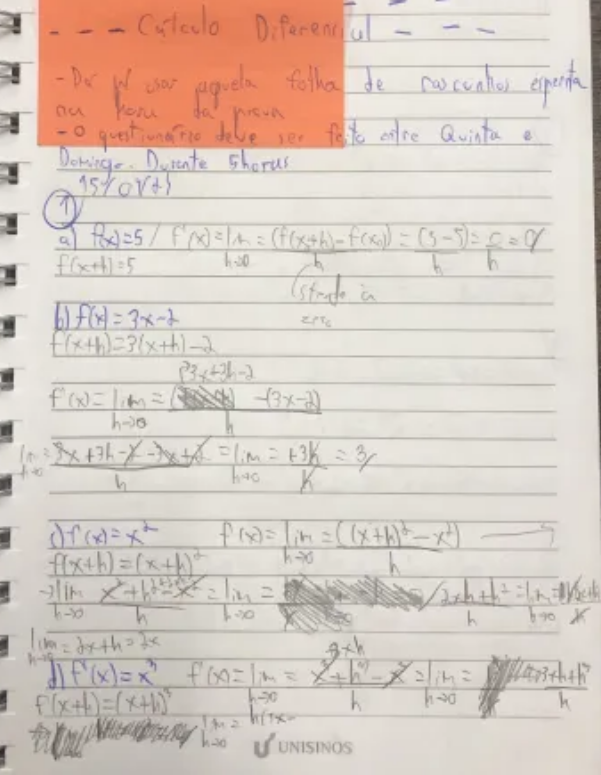 - - - Cálculo Diferencial - - -
- Dá p/ usar aquela folha de rascunhos esperta
na hora da prova
- O questionário deve ser feito entre Quinta e
Domingo. Durante 5horas
①
a) f(x)=5 / f'(x)=lim h→0 = (f(x+h)-f(x))/h = (5-5)/h = 0/h = 0
f(x+h)=5
zero
b) f(x)=3x-2
f(x+h)=3(x+h)-2
f'(x)=lim h→0 = (3x+3h-2 -(3x-2))/h
lim h→0 = (3x+3h-2-3x+2)/h = lim h→0 = +3h/h = 3
c) f(x)=x² f'(x)=lim h→0 = ((x+h)²-x²)/h →
f(x+h)=(x+h)²
→ lim h→0 = lim h→0 = 2xh+h²/h = lim h→0 =
lim h→0 = 2x+h=2x
d) f(x)=x³ f'(x)=lim h→0 = lim h→0 =
f(x+h)=(x+h)³
lim h→0 =
UNISINOS